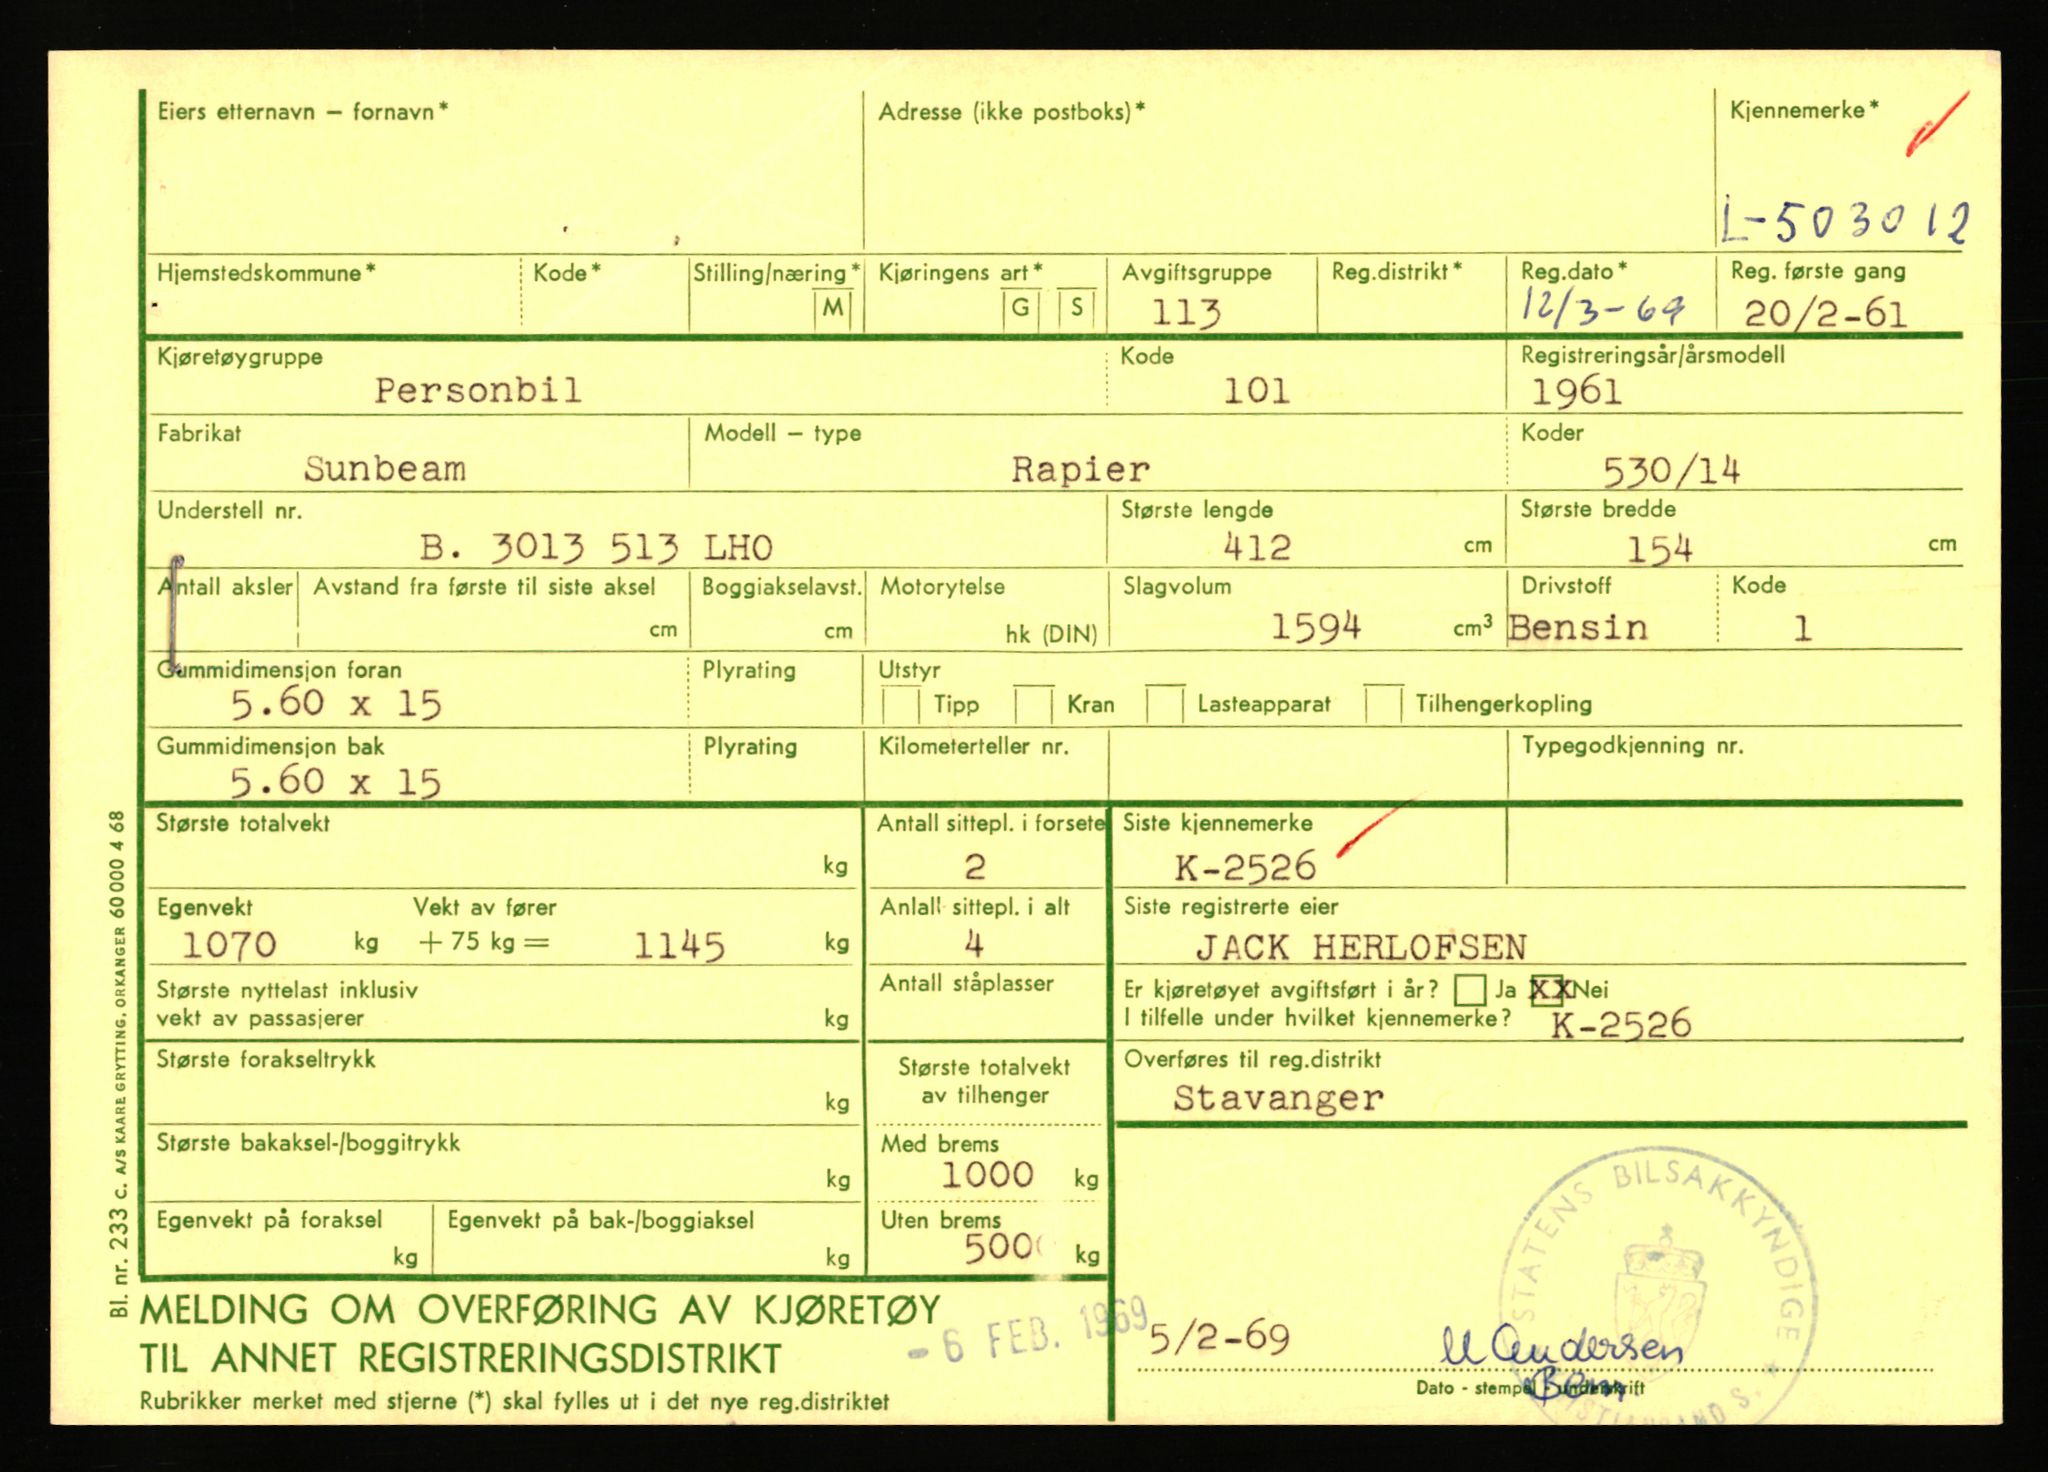 Eiers etternavn – fornavn*
Adresse (ikke postboks)*
Kjennemerke*
L-503012
Hjemstedskommune*
Kode*
Stilling/næring*
M
Kjøringens art*
G S
Avgiftsgruppe
113
Reg.distrikt*
Reg.dato*
12/3-69
Reg. første gang
20/2-61
Kjøretøygruppe
Personbil
Kode
101
Registreringsår/årsmodell
1961
Fabrikat
Sunbeam
Modell – type
Rapier
Koder
530/14
Understell nr.
B. 3013 513 LHO
Største lengde
412 cm
Største bredde
154 cm
Antall aksler
Avstand fra første til siste aksel
cm
Boggiakselavst.
cm
Motorytelse
hk (DIN)
Slagvolum
1594 cm³
Drivstoff
Bensin
Kode
1
Gummidimensjon foran
5.60 x 15
Plyrating
Utstyr
Tipp Kran Lasteapparat Tilhengerkopling
Gummidimensjon bak
5.60 x 15
Plyrating
Kilometerteller nr.
Typegodkjenning nr.
Største totalvekt
kg
Antall sittepl. i forsete
2
Siste kjennemerke
K-2526
Egenvekt
1070 kg
Vekt av fører
+ 75 kg = 1145 kg
Antall sittepl. i alt
4
Siste registrerte eier
JACK HERLOFSEN
Største nyttelast inklusiv
vekt av passasjerer kg
Antall ståplasser
Er kjøretøyet avgiftsført i år? Ja XX Nei
I tilfelle under hvilket kjennemerke? K-2526
Største forakseltrykk
kg
Største totalvekt
av tilhenger
Overføres til reg.distrikt
Stavanger
Største bakaksel-/boggitrykk
kg
Med brems
1000 kg
Egenvekt på foraksel
kg
Egenvekt på bak-/boggiaksel
kg
Uten brems
500 kg
MELDING OM OVERFØRING AV KJØRETØY
TIL ANNET REGISTRERINGSDISTRIKT
Rubrikker merket med stjerne (*) skal fylles ut i det nye reg.distriktet
- 6 FEB. 1969
5/2-69
Andersen
Dato - stempel - underskrift
STATENS BILSAKKYNDIGE * KRISTIANSAND S. *
Bl. nr. 233 c. A/S KAARE GRYTTING, ORKANGER 60 000 4 68